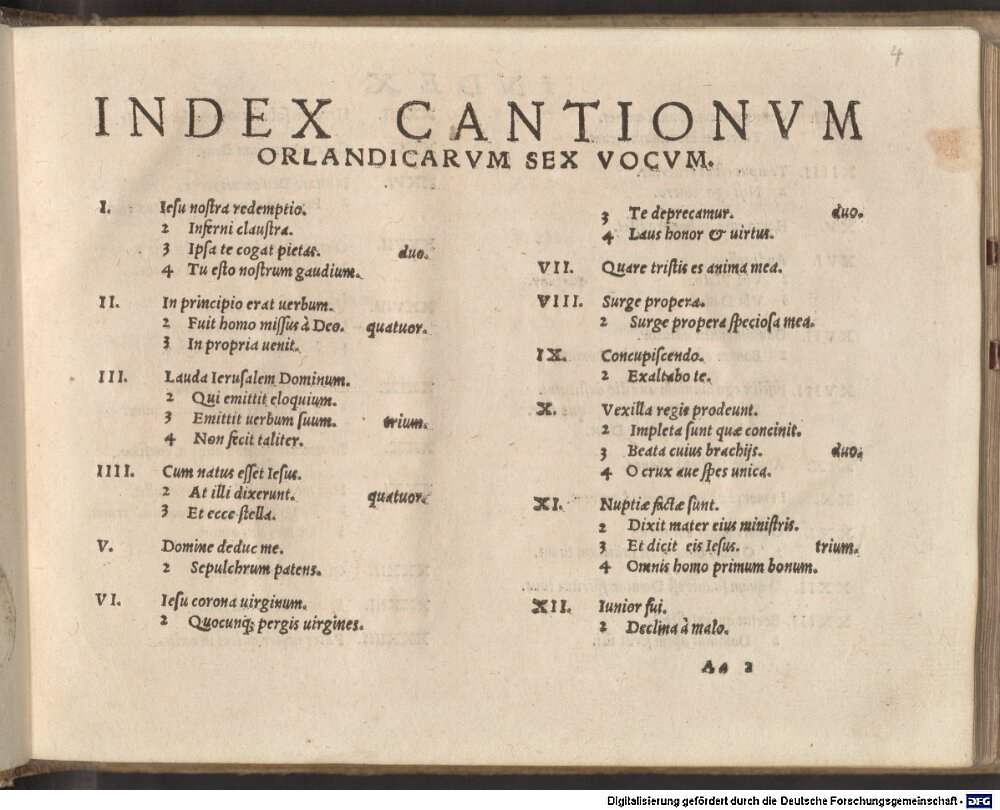 4
INDEX CANTIONVM
ORLANDICARVM SEX VOCVM.
I. Iesu nostra redemptio.
2 Inferni claustra.
3 Ipsa te cogat pietas. duo.
4 Tu esto nostrum gaudium.
II. In principio erat uerbum.
2 Fuit homo missus à Deo. quatuor.
3 In propria uenit.
III. Lauda Ierusalem Dominum.
2 Qui emittit eloquium.
3 Emittit uerbum suum. trium.
4 Non fecit taliter.
IIII. Cum natus esset Iesus.
2 At illi dixerunt. quatuor.
3 Et ecce stella.
V. Domine deduc me.
2 Sepulchrum patens.
VI. Iesu corona uirginum.
2 Quocunq; pergis uirgines.
3 Te deprecamur. duo.
4 Laus honor & uirtus.
VII. Quare tristis es anima mea.
VIII. Surge propera.
2 Surge propera speciosa mea.
IX. Concupiscendo.
2 Exaltabo te.
X. Vexilla regis prodeunt.
2 Impleta sunt quæ concinit.
3 Beata cuius brachijs. duo.
4 O crux aue spes unica.
XI. Nuptiæ factæ sunt.
2 Dixit mater eius ministris.
3 Et dicit eis Iesus. trium.
4 Omnis homo primum bonum.
XII. Iunior fui.
2 Declina à malo.
Aa 2
Digitalisierung gefördert durch die Deutsche Forschungsgemeinschaft - DFG